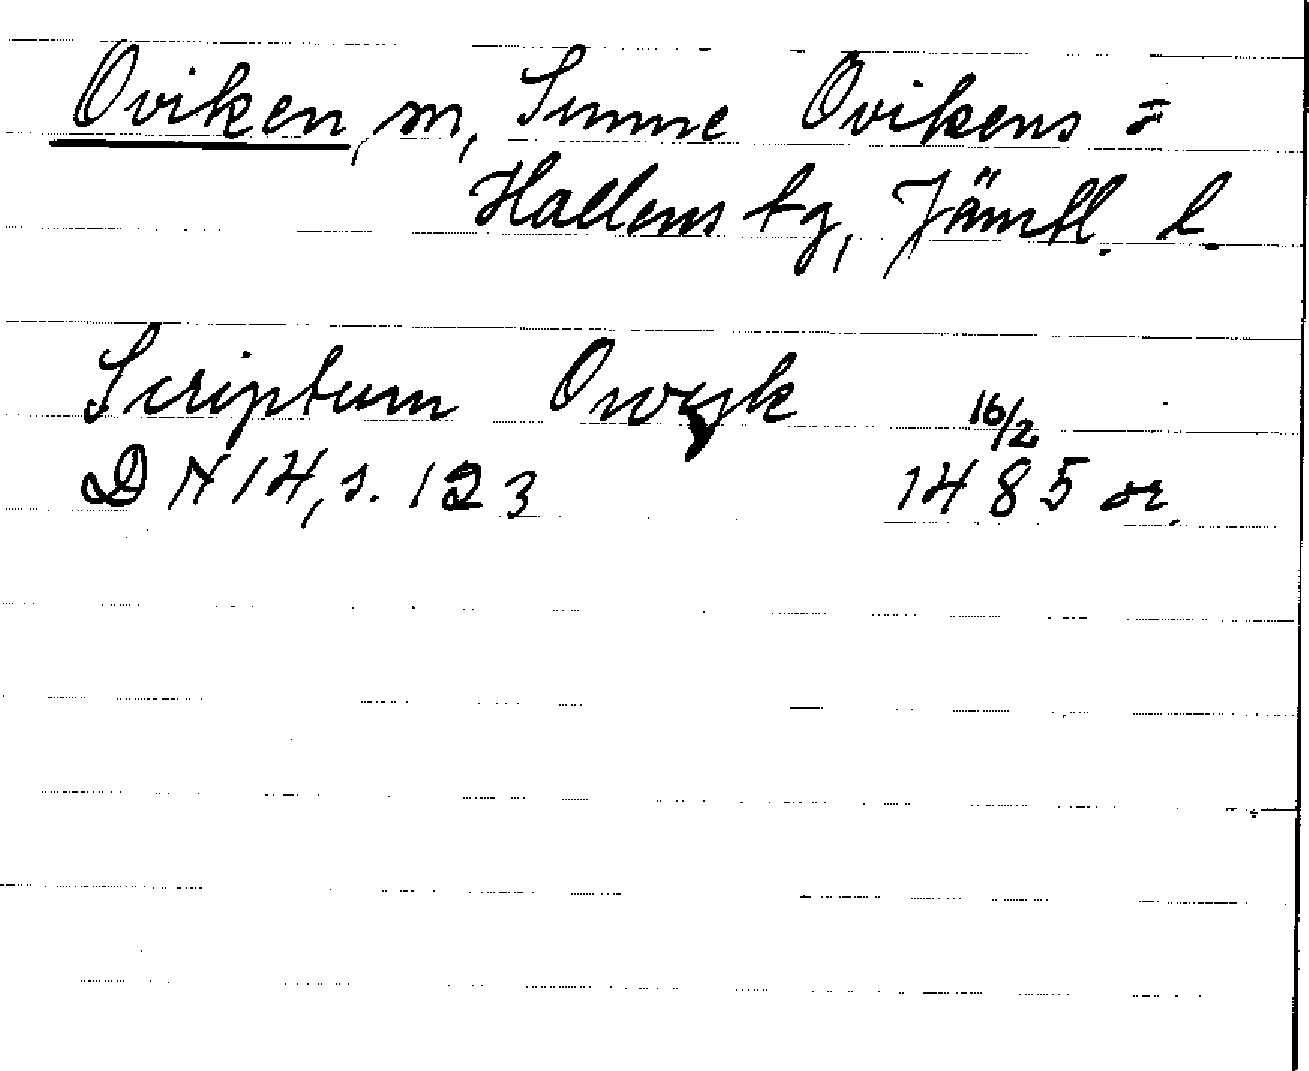 Oviken, sn, Sunne Ovikens =
Hallens tg, Jämtl. l.
Scriptum Owyk 16/2
DN 14, s. 123 1485 or.